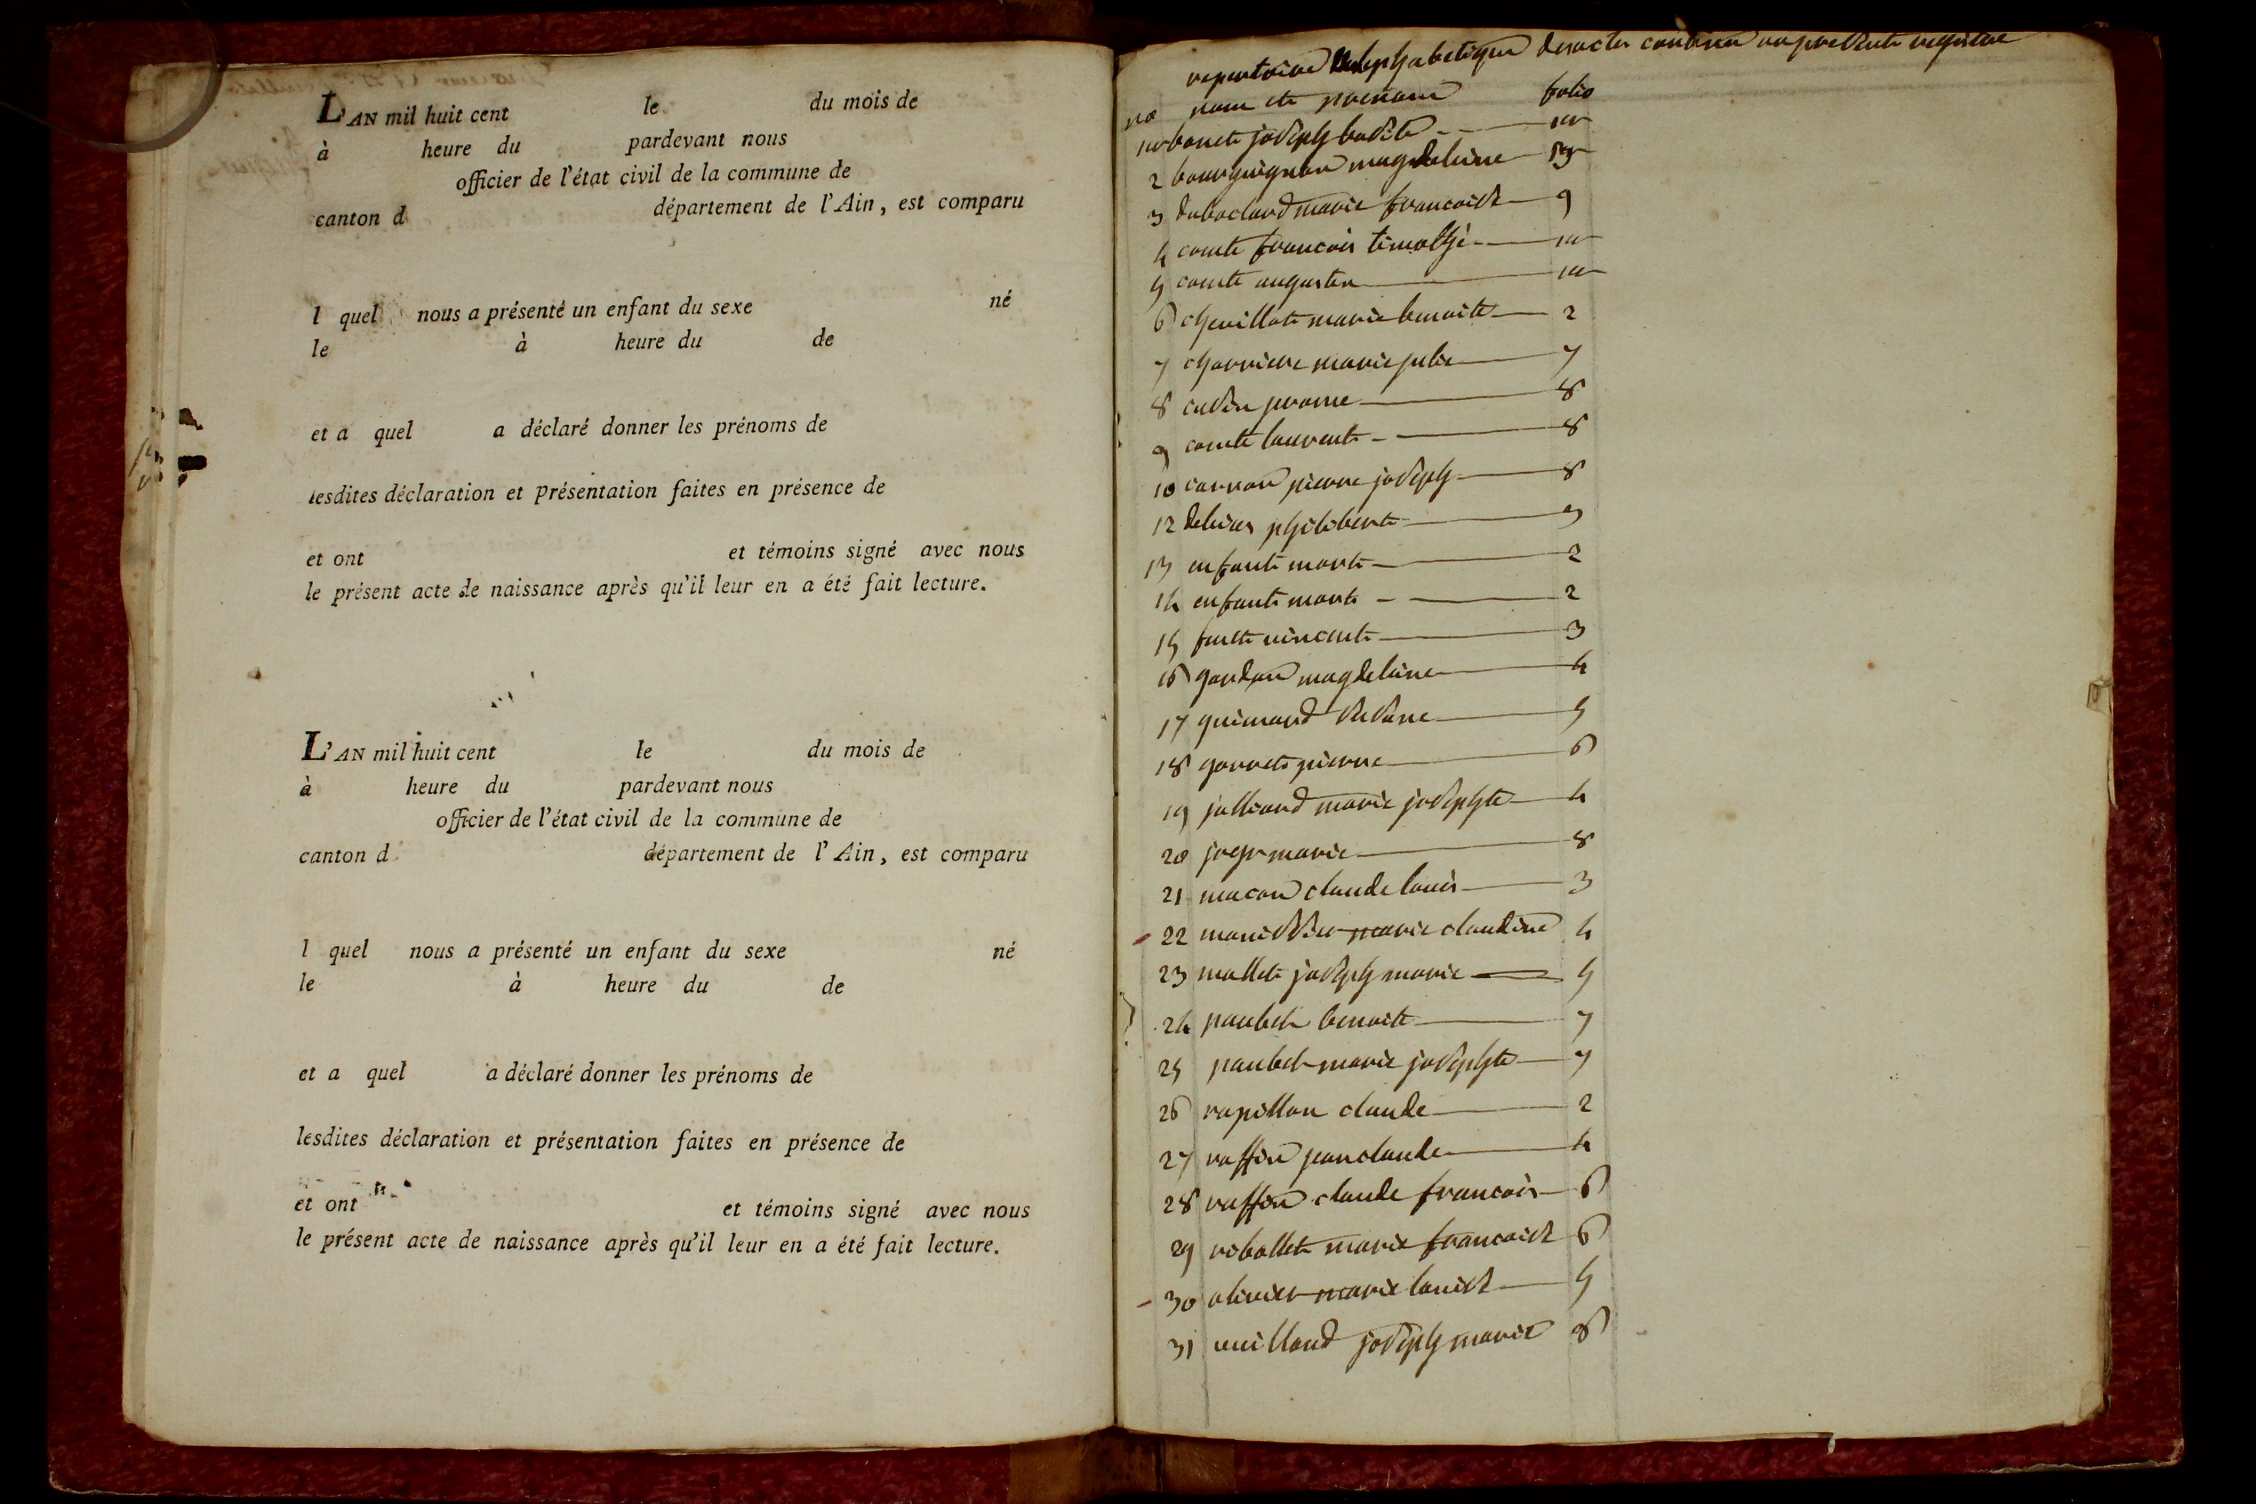 L'AN mil huit cent le du mois de
à heure du pardevant nous
officier de l'état civil de la commune de
canton d département de l'Ain, est comparu
l quel nous a présenté un enfant du sexe né
le à heure du de
et a quel a déclaré donner les prénoms de
lesdites déclaration et présentation faites en présence de
et ont et témoins signé avec nous
le présent acte de naissance après qu'il leur en a été fait lecture.
L'AN mil huit cent le du mois de
à heure du pardevant nous
officier de l'état civil de la commune de
canton d département de l'Ain, est comparu
l quel nous a présenté un enfant du sexe né
le à heure du de
et a quel a déclaré donner les prénoms de
lesdites déclaration et présentation faites en présence de
et ont et témoins signé avec nous
le présent acte de naissance après qu'il leur en a été fait lecture.
repertoire alephabetique desactes contenu au present registre
no nom et prenom folio
joseph
2 bourguignon magdeleine
3 marie francoise 9
4 comte francois timothé
5 comte augustin
6 chevillot marie benoite 2
7 charriere marie julie 7
8 8
9 comte laurent 8
10 carron pierre joseph 8
12 philibert 9
13 enfant mort 2
14 enfant mort 2
15 vincent 3
16 magdeleine 4
17 5
18 pierre 6
19 marie josephte 4
20 marie 8
21 macon claude louis 3
22 marie claudine 4
23 mallet joseph marie 5
24 paubel benoite 7
25 paubel marie josephte 7
26 rapillon claude 2
27 raffin jean claude 4
28 raffin claude francois 6
29 ribollet marie francoise 6
30 olivier marie louise 5
31 vuilloud joseph marie 8